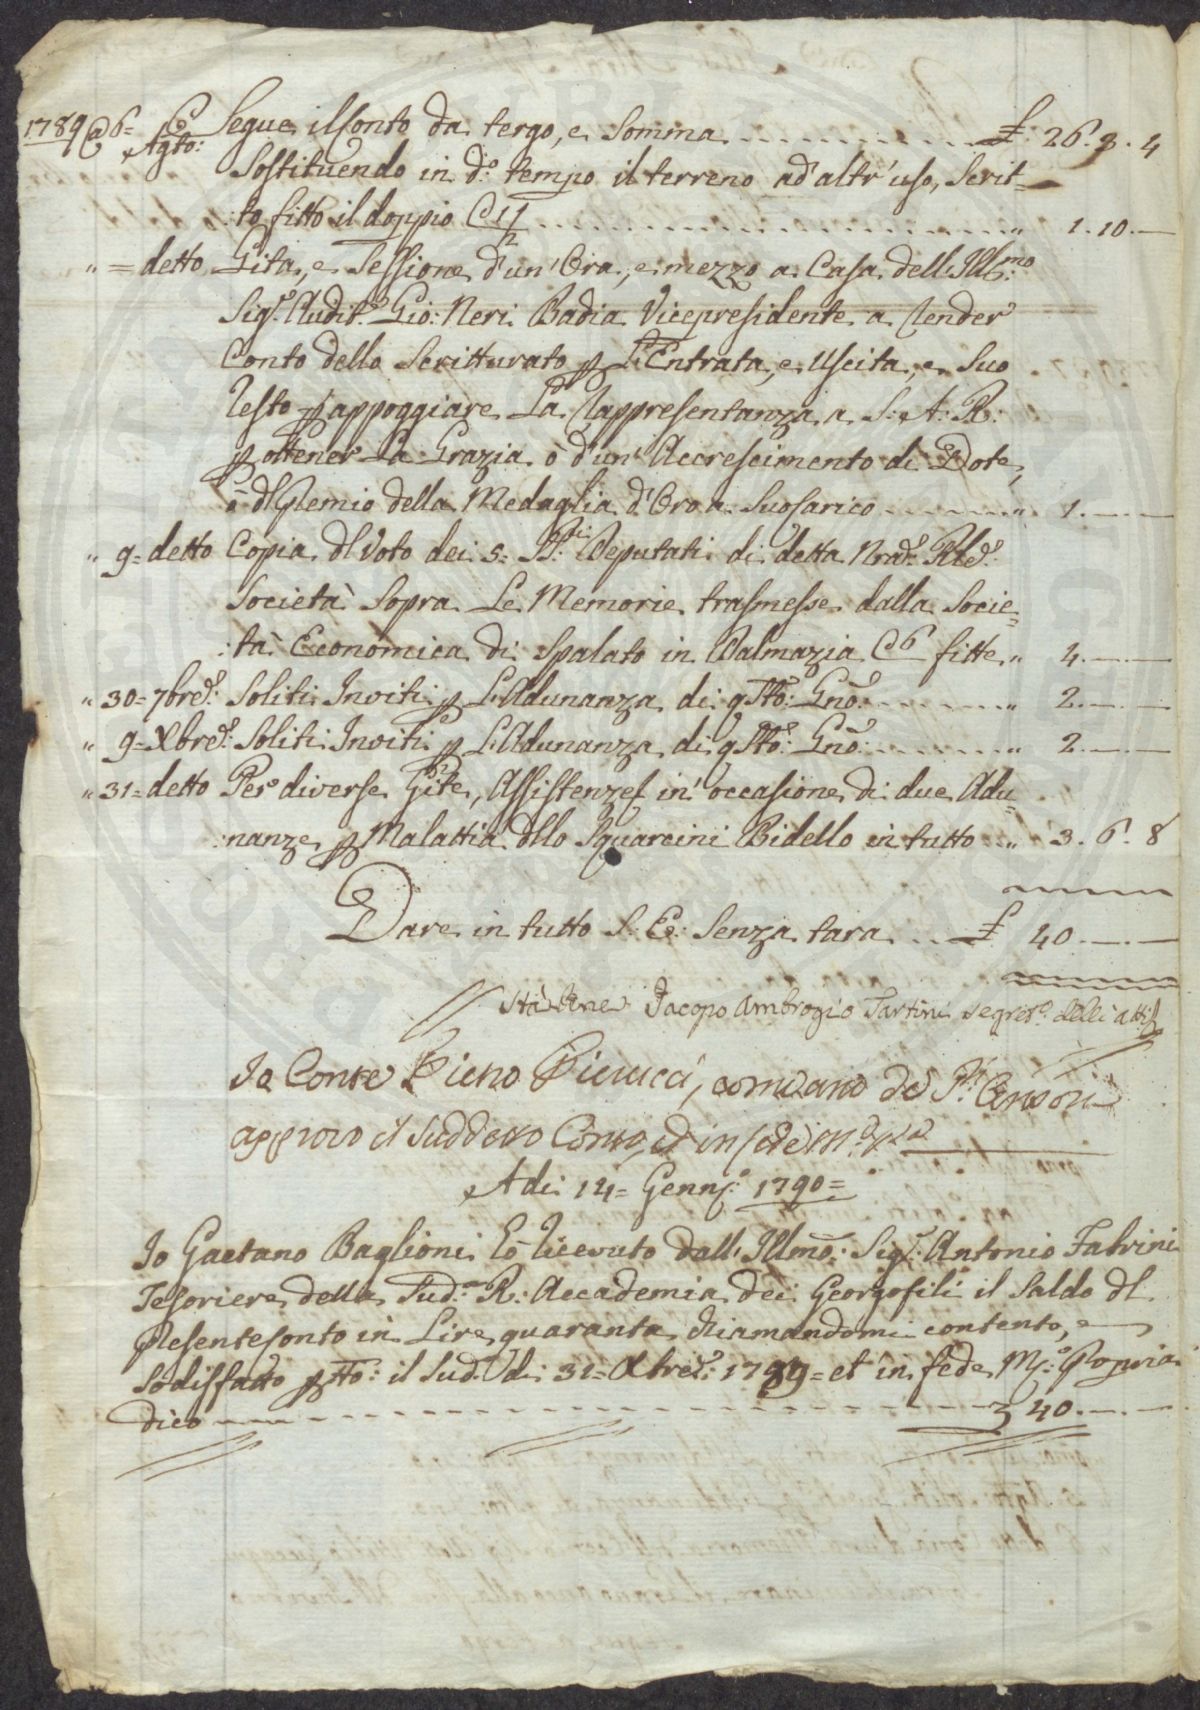 1789 @ 6= Agto: Segue il Conto da tergo, e Somma £ 26. 3. 4
Sostituendo in do: tempo il terreno ad' altr' uso, Scrit=
:to fitto il doppio C 1/2 " 1. 10. —
" = detto Gita, e Sessione d'un' Ora, e mezzo a Casa dell' Illmo:
Sigr. Audit.e Gio: Neri Badia Vicepresidente a render
Conto dello Scritturato p L'Entrata, e Uscita, e Suo
resto p appoggiare La rappresentanza a S: A: R:
p ottener La Grazia ò d'un' Accrescimento di Dote,
ò dl Premio della Medaglia d'Oro a Suo Carico " 1. — —
" 9= detto Copia dl Voto dei 5= SS:ri Deputati di detta Nra: Rle:
Società Sopra Le Memorie trasmesse dalla Socie=
:tà Economica di Spalato in Dalmazia C 6 fitte " 4. — —
" 30= 7bre: Soliti Inviti p L'Adunanza di qsto: Gno: " 2. — —
" 9= Xbre: Soliti Inviti p L'Adunanza di qsto: Gno: " 2. — —
" 31= detto Per diverse Gite, Assistenze in' occasione di due Adu=
:nanze p Malattia dllo Squarcini Bidello in tutto " 3. 6. 8
Dare in tutto S: E: Senza tara £ 40. — —
Sta bene Jacopo Ambrogio Tartini segreto. delli atti
Io Conte Pieno Pierucci, comé uno de Sri: Censori
approvo il suddetto Conto, ed in fede Mo. ppa
A di 14= Gennjo: 1790=
Io Gaetano Baglioni hò ricevuto dall' Illmo: Sigr: Antonio Fabrini
Tesoriere della Sud:a R: Accademia dei Georgofili il Saldo dl
presente Conto in Lire quaranta chiamandomi contento, e
sodisfatto p tto: il Sud.o di 31= Xbre: 1789= et in fede Mo: Propria
dico £ 40. — —